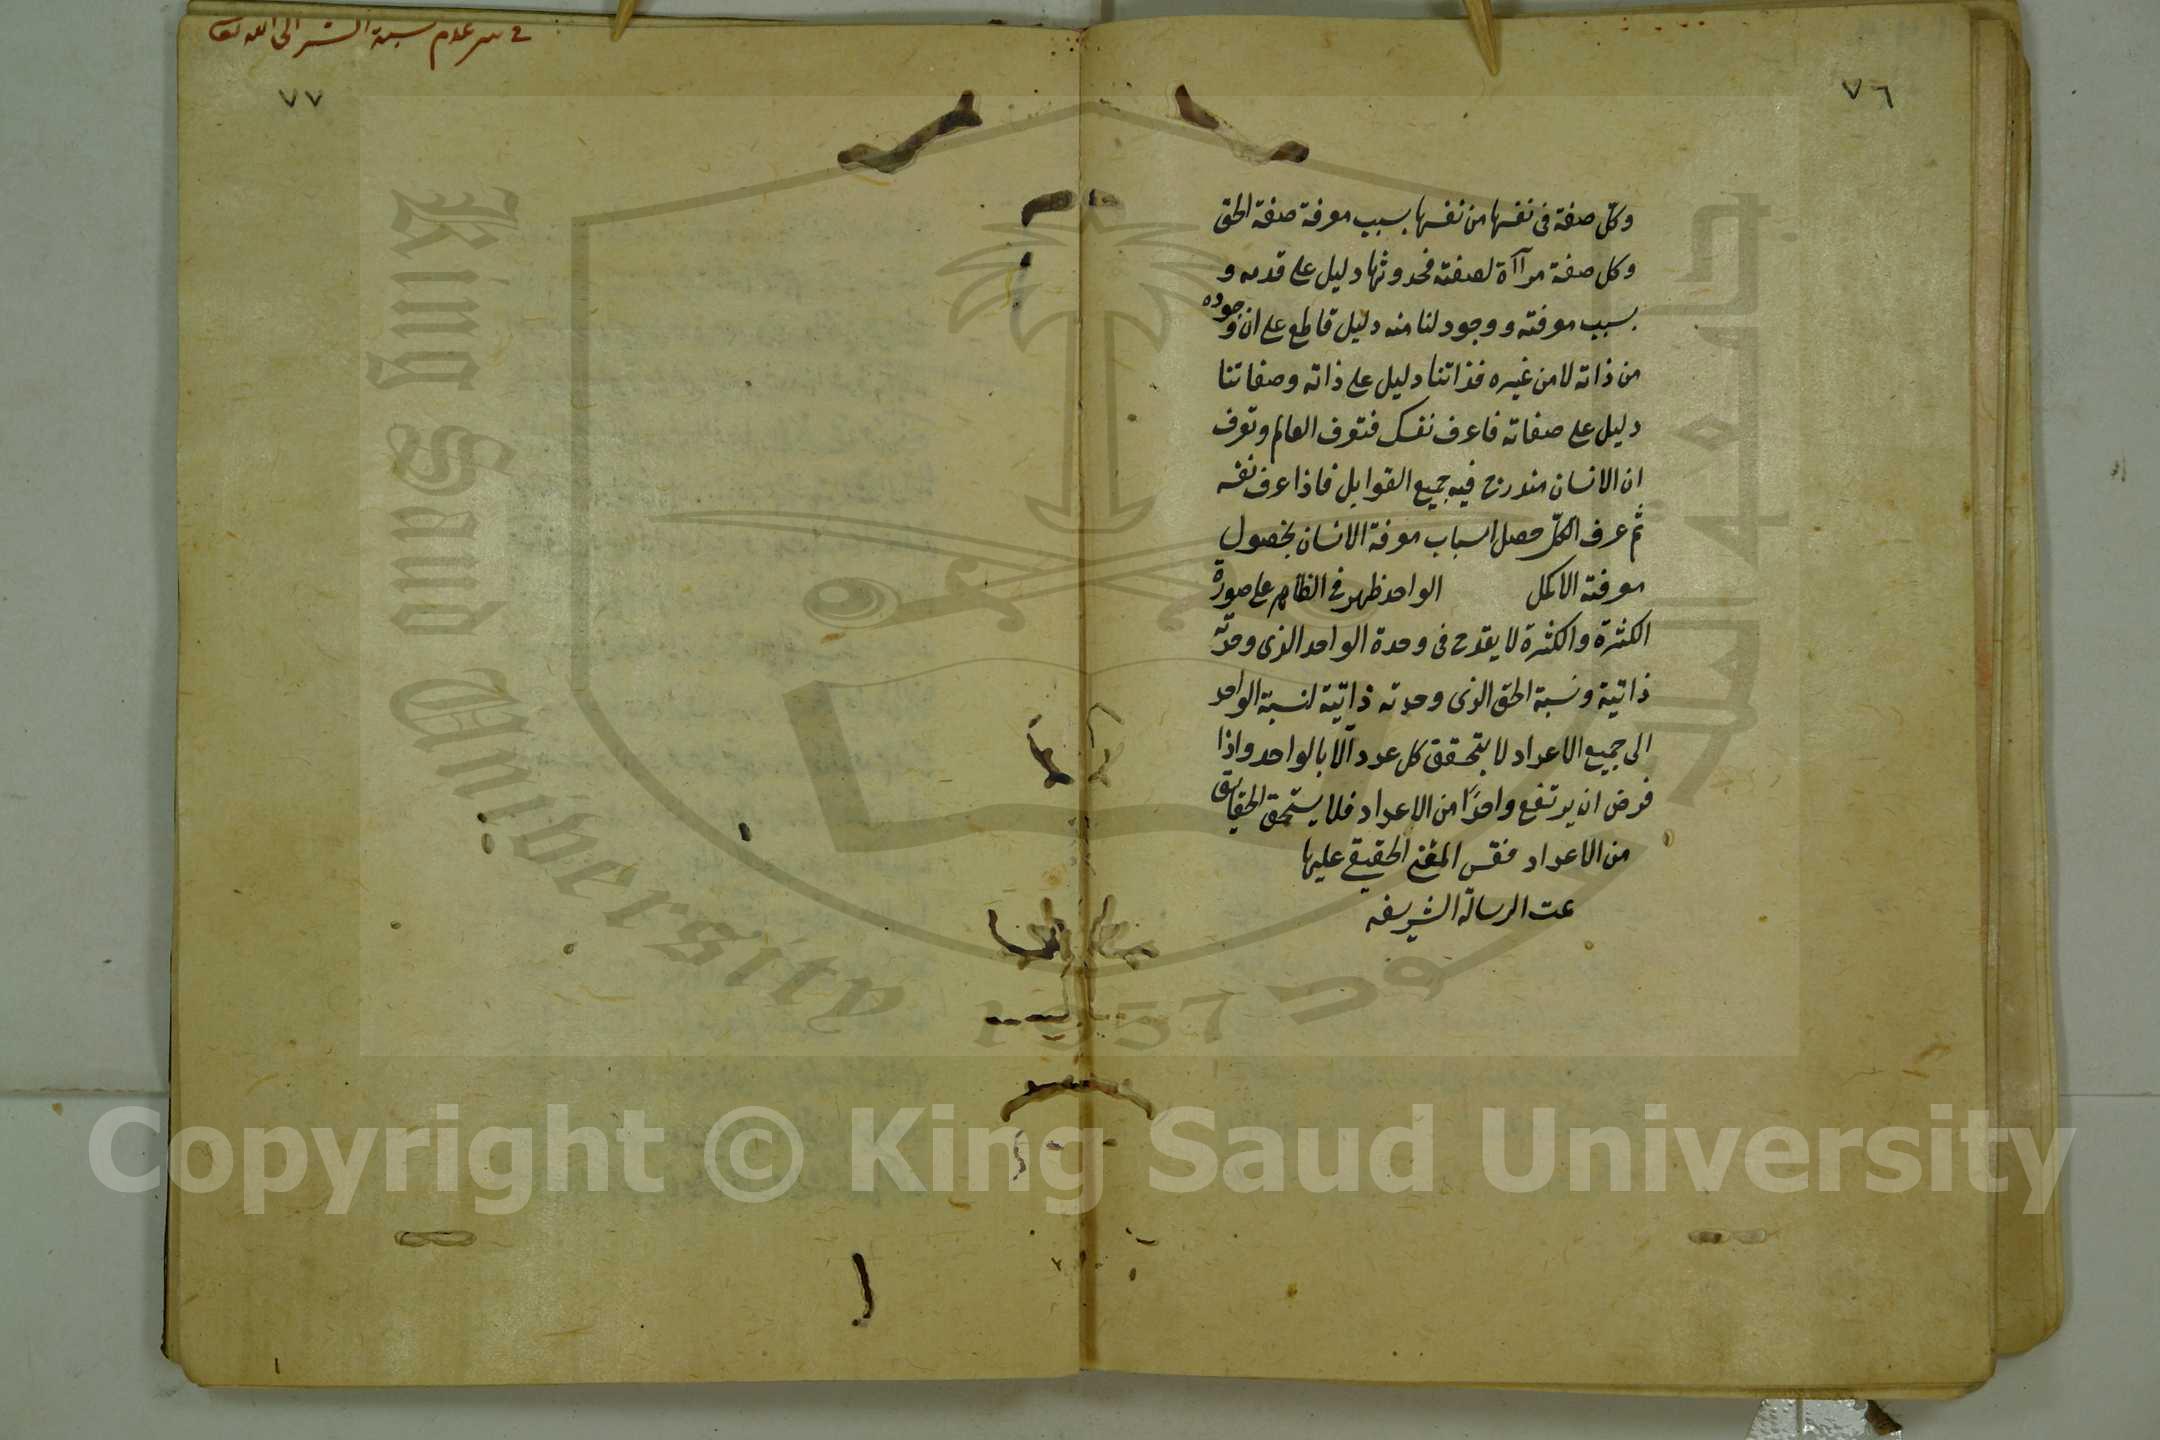 ٧٦
وكل صفة فى نفسها من نفسها بسبب معرفة صفة الحق
وكل صفة مرآة لصفته فحدوثها دليل على قدمه و
بسبب معرفته ووجود لنا منه دليل قاطع على ان وجوده
من ذاته لا من غيره فذاتنا دليل على ذاته وصفاتنا
دليل على صفاته فاعرف نفسك فتعرف العالم وتعرف
ان الانسان مندرج فيه جميع القوابل فاذا عرف نفسه
ثم عرف الكل حصل اسباب معرفة الانسان بحصول
معرفته الاكمل الواحد ظهر فى الظاهر على صورة
الكثرة والكثرة لا يقدح فى وحدة الواحد الذى وحدته
ذاتية ونسبة الحق الذى وحدته ذاتية لنسبة الواحد
الى جميع الاعداد لا يتحقق كل عدد الا بالواحد واذا
فرض ان يرتفع واحدًا من الاعداد فلا يستحق الحقايق
من الاعداد فقس المعنى الحقيقى عليها
تمت الرسالة الشريفه
فى سر عدم نسبة الشر الى الله تعا
٧٧
Copyright © King Saud University
King Saud University
1957